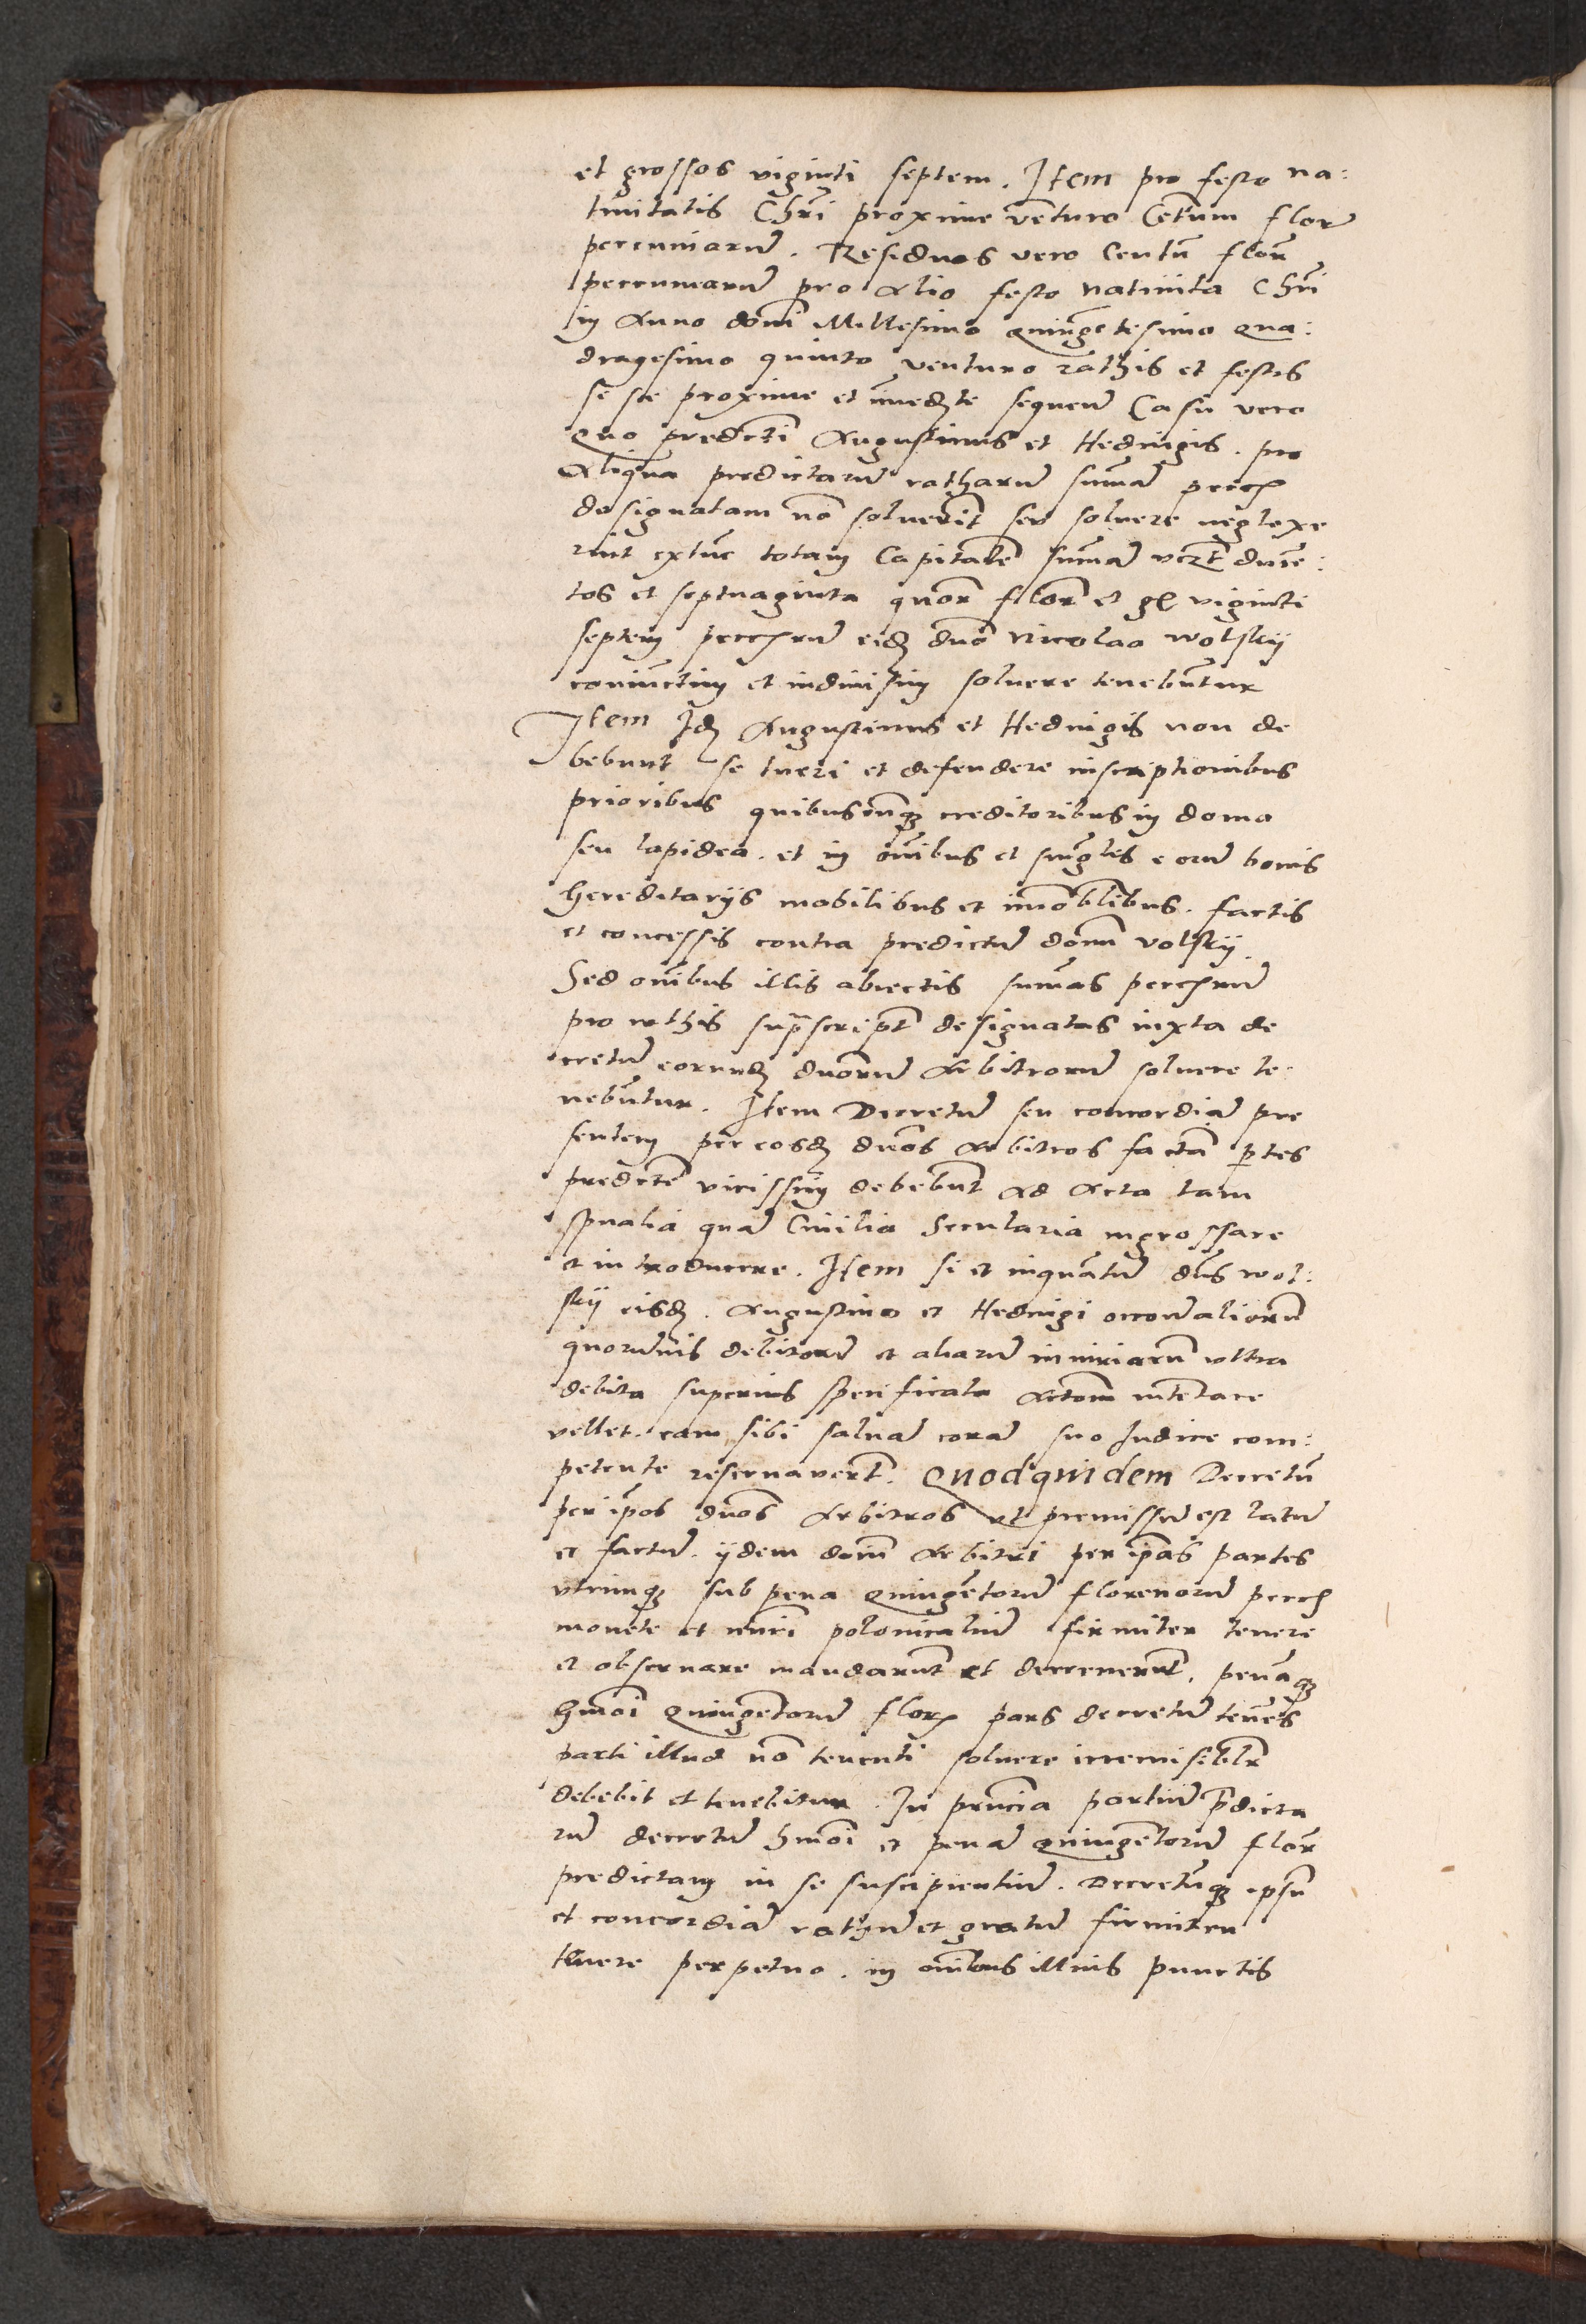 et grossos viginti septem. Item pro festo na:
tiuitatis Chri proxime venturo Cetum flor
pecuniarū. Residuos vero Centū florū
pecuniarū pro Alio festo natiuita Chri
in Anno domi Millesimo quingetesimo qua:
dragesimo quinto venturo rathis et festis
se se proxime et imediate sequeñ Casu vero
quo predicti Augustinus et Heduigis. pro
Aliqua predictarū ratharū sumā pecch
designatam nō soluerit seu soluere neglexe
rint extūc totam Capitalē sumā vczt ducē:
tos et septuaginta quor flor et gl viginti
septem pecchrū eid dno Nicolao Wolskij
coniūctim et indiuisim soluere tenebūtur
Item Id Augustinus et Heduigis non de
bebunt se tueri et defendere inscriptionibus
prioribus quibuscūq creditoribus in domo
seu lapidea. et in oībus et singlis eorū bonis
hereditarijs mobilibus et imoblibus. factis
et concessis contra predictū dom volskij.
Sed omibus illis abiectis sumas pecchrū
pro rathis suprascript designatas iuxta de
cretū eorund dnorū Arbitrorū soluere te
nebūtur. Item Decretū seu concordiā pre
sentem per eosd dnos Arbitros factā ptes
predicte vicissim debebūt Ad Acta tam
spualia quā Ciuilia Secularia ingrossare
et introducere. Item si et inquātū dns Wol:
skij eisd. Augustino et Heduigi occoē aliorū
quorūuis debitorū et aliarū iniuriarū vltra
debita superius specificata Actom intētare
vellet. eam sibi saluā corā suo Iudice com:
petente reseruauert. Quodquidem Decretū
per ipos dnos Arbitros vt premissū est latū
et factū. ijdem domi Arbitri per ipas partes
vtrimq sub pena quingētorū florenorū pecch
monete et nūri polonicaliū firmiter tenere
et obseruare mandarūt et decreuerūt. penāq
hmoi quingētorū florz pars decretū tenēs
parti illud nō tenenti soluere irremisiblr
debebit et tenebitur. In pnīcia partiū pdicta
rū decretū hmoi et penā quingētorū flor
predictam in se suscipientiū. Decretūq ipsū
et concordiā rathū et gratū firmiter
tenere perpetuo. in omibus illius punctis